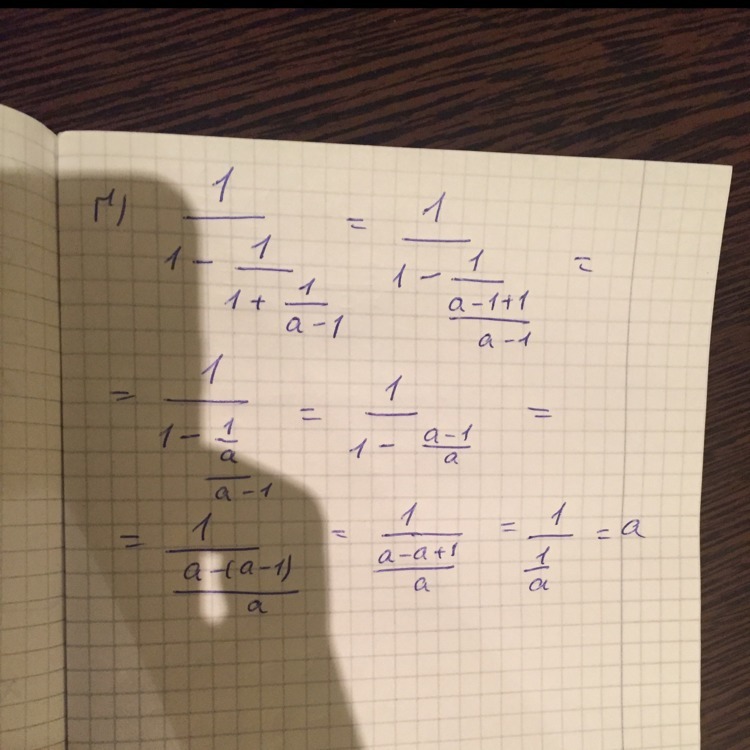 г) \frac{1}{1 - \frac{1}{1 + \frac{1}{a-1}}} = \frac{1}{1 - \frac{1}{\frac{a-1+1}{a-1}}} =
= \frac{1}{1 - \frac{1}{\frac{a}{a-1}}} = \frac{1}{1 - \frac{a-1}{a}} =
= \frac{1}{\frac{a-(a-1)}{a}} = \frac{1}{\frac{a-a+1}{a}} = \frac{1}{\frac{1}{a}} = a